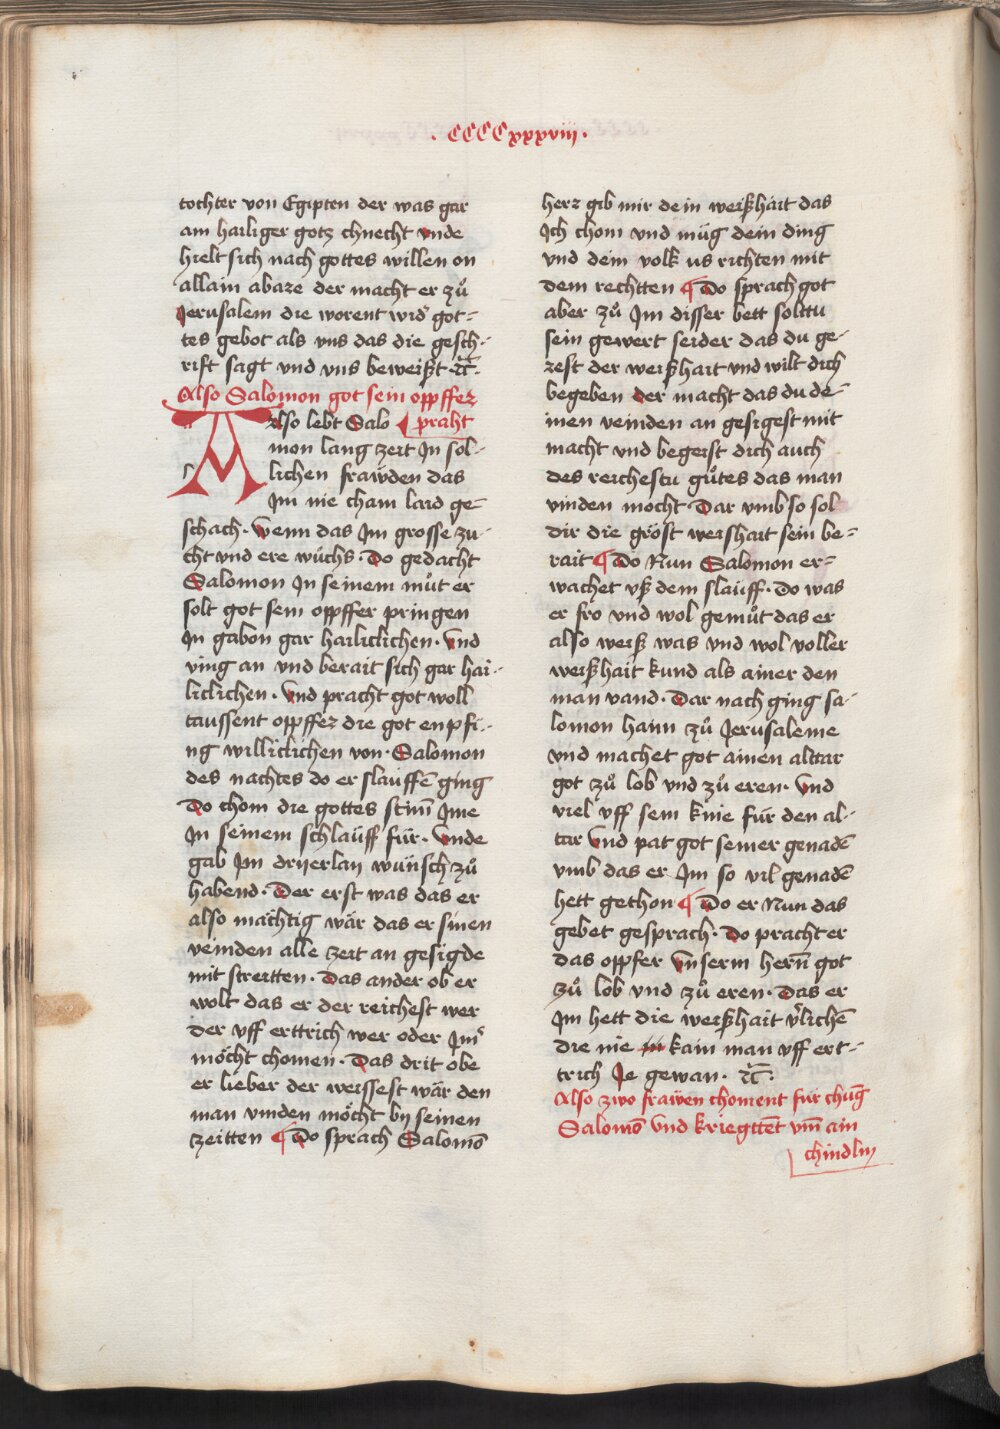 . CCCCxxxviij .
tochter von Egipten der was gar
am hailiger gotz chnecht vnde
hielt sich nach gottes willen on
allain abaze der macht er zů
Jerusalem die worent wid̾ got=
tes gebot als vns das die gesch-
rift sagt vnd vns beweißt · ꝛc̄ ·
Also Salomon got sein oppffer
praht
Also lebt Salo
mon lang zeit Jn sol-
lichen frawden das
Jm nie cham laid ge-
schach · Wenn das Jm grosse zu-
cht vnd ere wůchs · Do gedacht
Salomon Jn seinem můt er
solt got sem oppffer pringen
Jn gabon gar hailiclichen · Vnd
ving an vnd berait sich gar hai-
liclichen · Vnd pracht got woll
taussent oppffer die got enpfi-
ng williclichen von · Salomon
des nachtes do er slauffē ging
Do chom die gottes stim̄ Jme
Jn seinem schlauff für · Vnde
gab Jm dryerlay wünsch zů
habend · Der erst was das er
also mächtig wär das er sinen
veinden alle zeit an gesigde
mit streitten · Das ander ob er
wolt das er der reichest wer
der vff erttrich wer oder Jm̾
möcht chomen · Das drit obe
er lieber der weissest wär den
man vinden möcht by seinen
zeitten ¶ Do sprach Salomō
herz gib mir dein weißhait das
Jch chom vnd müg dein ding
vnd dein volk us richten mit
dem rechtten ¶ Do sprach got
aber zů Jm disser bett solttu
sein gewert seider das du ge-
rest der weißhait vnd wilt dich
begeben der macht das du de-
inen veinden an gesigest mit
macht vnd begeist dich auch
des reichestu gůtes das man
vinden mocht Dar vmb so sol
dir die gröst weishait sein be=
rait ¶ Do Nun Salomon er=
wachet vß dem slauff · Do was
er fro vnd wol gemůt das er
also weiß was vnd wol voller
weißhait kund als ainer den
man vand · Dar nach ging sa-
lomon hann zů Jerusaleme
vnd machet got ainen alttar
got zů lob vnd zů eren · Vnd
viel vff sem knie für den al-
tar Vnd pat got seiner genadē
vmb das er Jm so vil genadē
hett gethon ¶ Do er Nun das
gebet gesprach · Do pracht er
das oppfer Vnserm hern̄ got
zů lob vnd zů eren · Das er
Jm hett die weißhait v̾lichē
die nie kain man vff ert-
trich Je gewan · ꝛc̄ ·
Also zwo frawen choment für chūg
Salomō vnd kriegttēt vm̄ ain
chindlin